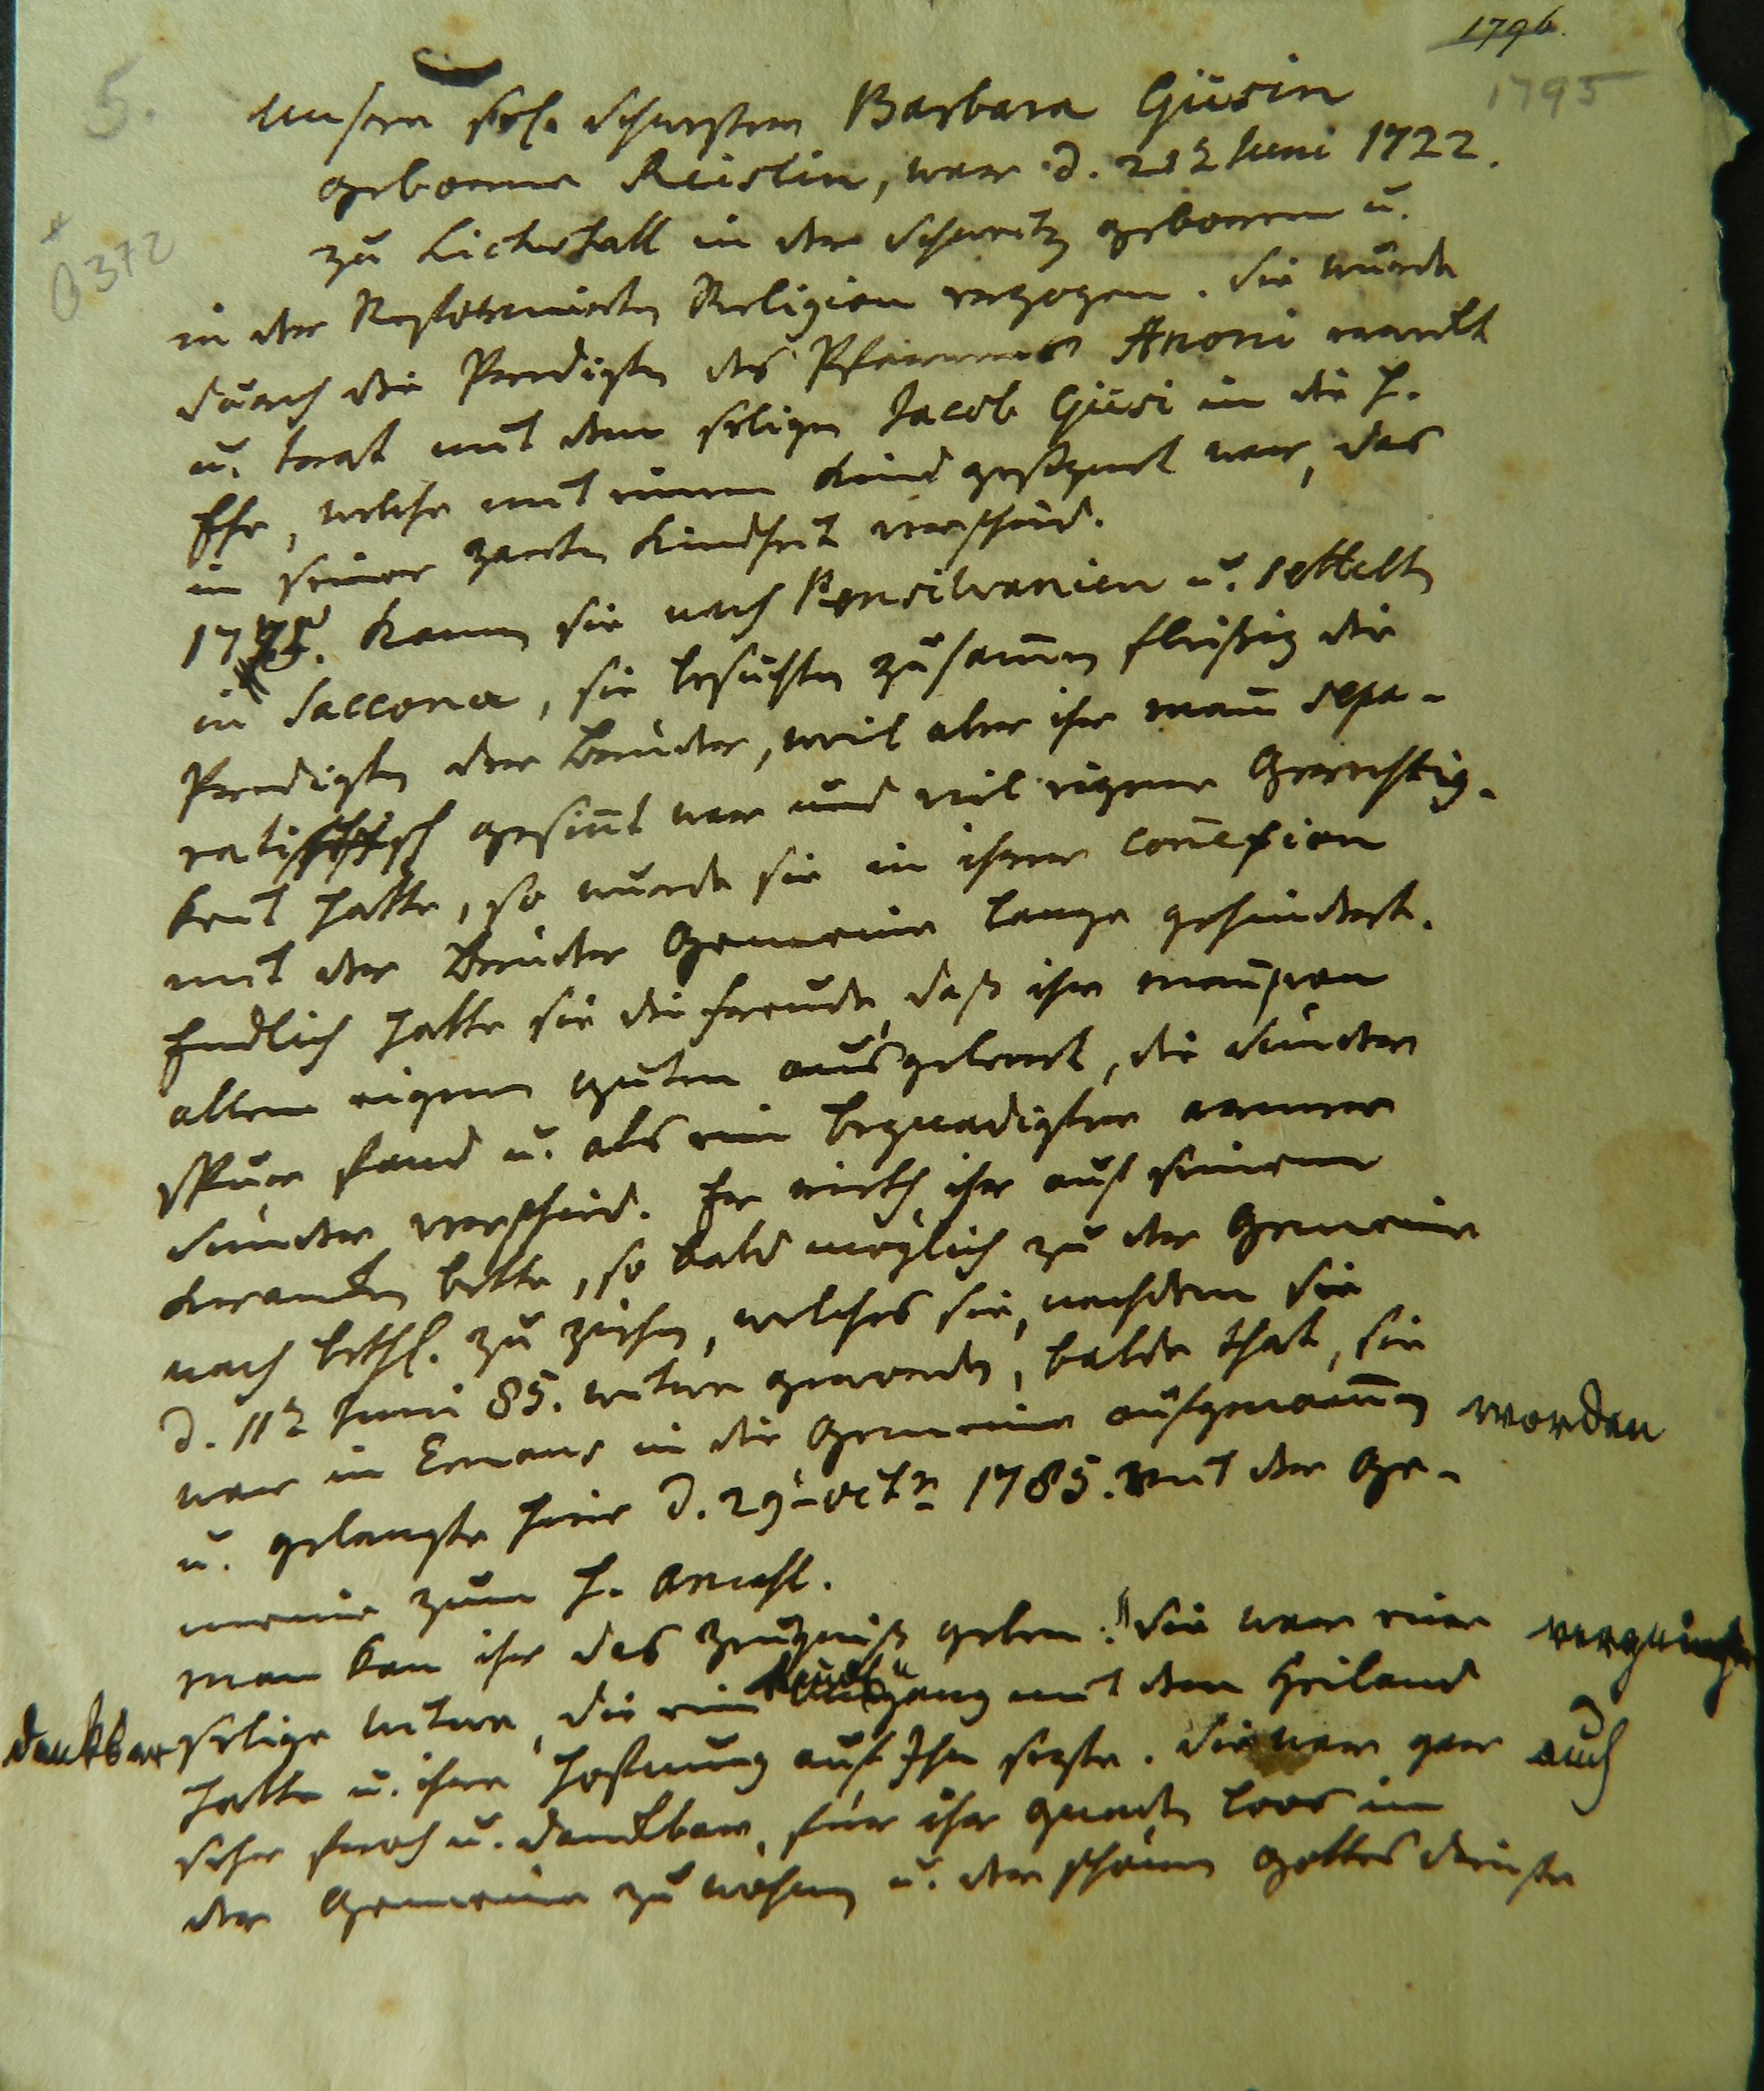 1796.
1795
5.
0372
Unsere sel. Schwester Barbara Güsin
geborne Reislin, war d. 21t Juni 1722.
zu Lichstall in der Schweitz geboren u.
in der Reformirten Religion erzogen. Sie wurde
durch die Predigten des Pfarrers Anoni erweckt
u. trat mit dem seligen Jacob Güsi in die h.
Ehe, welche mit einem Kind gesegnet war, das
in seiner zarten Kindheit verschied.
kamen sie nach Pensilvanien u. settelten
in Saccona, sie besuchten zusam̄en fleißig die
Predigten der Brüder, weil aber ihr man̄ sepa-
ratistisch gesin̄t war und viel eigene Gerechtig-
keit hatte, so wurde sie in ihrer con̄exion
mit der Brüder Gemeine lange gehindert.
Endlich hatte sie die Freude, daß ihr man̄ von
allem eigenen guten ausgeleert, die Sünder
Spur fand u. als ein begnadigter armer
Sünder verschied. Er rieth ihr auf seinem
Krancken bette, so bald möglich zu der Gemeine
nach bethl. zu ziehen, welches sie, nachdem sie
d. 11t Juni 85. witwe geworden, balde that, sie
war in Emaus in die Gemeine aufgenom̄en worden
u. gelangte hier d. 29t octr 1785. mit der Ge-
meine zum h. Abendmahl.
man kan ihr das Zeugniß geben: "Sie war eine vergnügte
dankbar selige witwe, die ein Umgang mit dem Heiland
hatte u. ihre Hofnung auf Ihn sezte. Sie war gar auch
sehr froh u. danckbar, für ihr Gnaden loos in
der Gemeine zu wohnen u. der schönen Gottes dienste